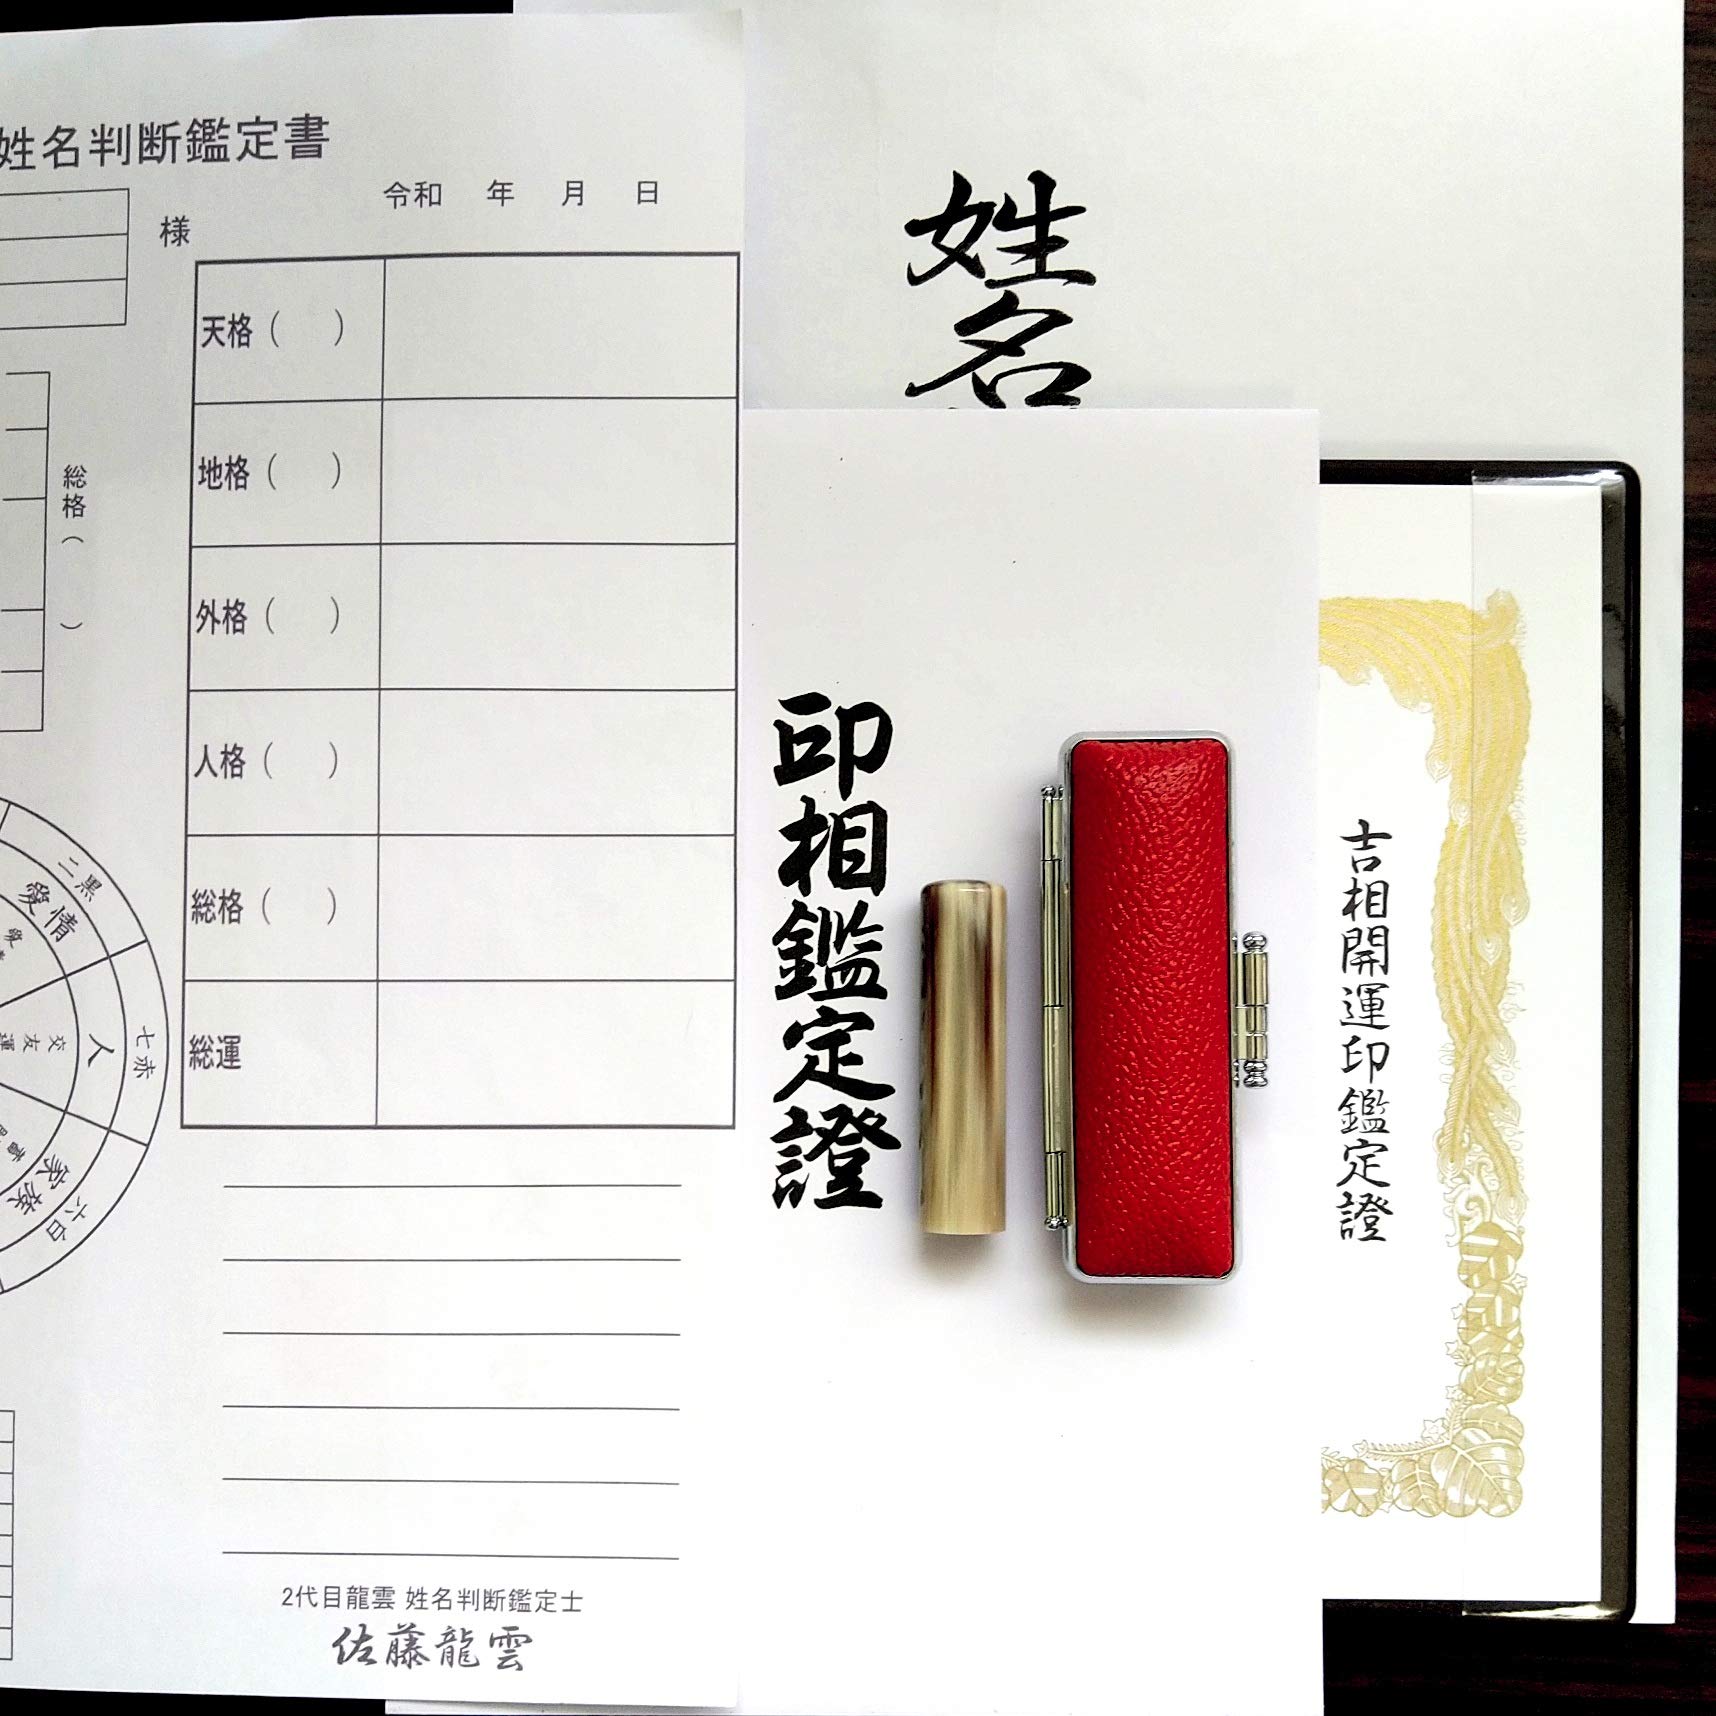 姓名判断鑑定書
令和　年　月　日
様
天格（　）
地格（　）
外格（　）
人格（　）
総格（　）
総運
総格（　）
二黒
愛情
七赤
人
交友運
六白
家族
2代目龍雲 姓名判断鑑定士
佐藤龍雲
姓名
印相鑑定證
吉相開運印鑑定證